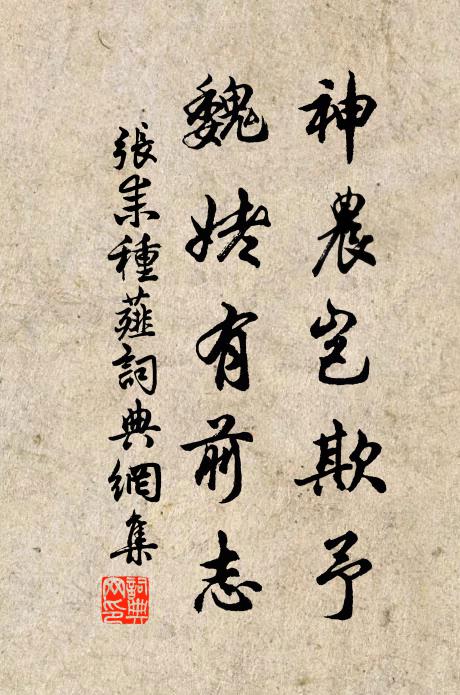 神農豈欺予
魏姥有前志
張耒種薤詞典網集
詞典網印